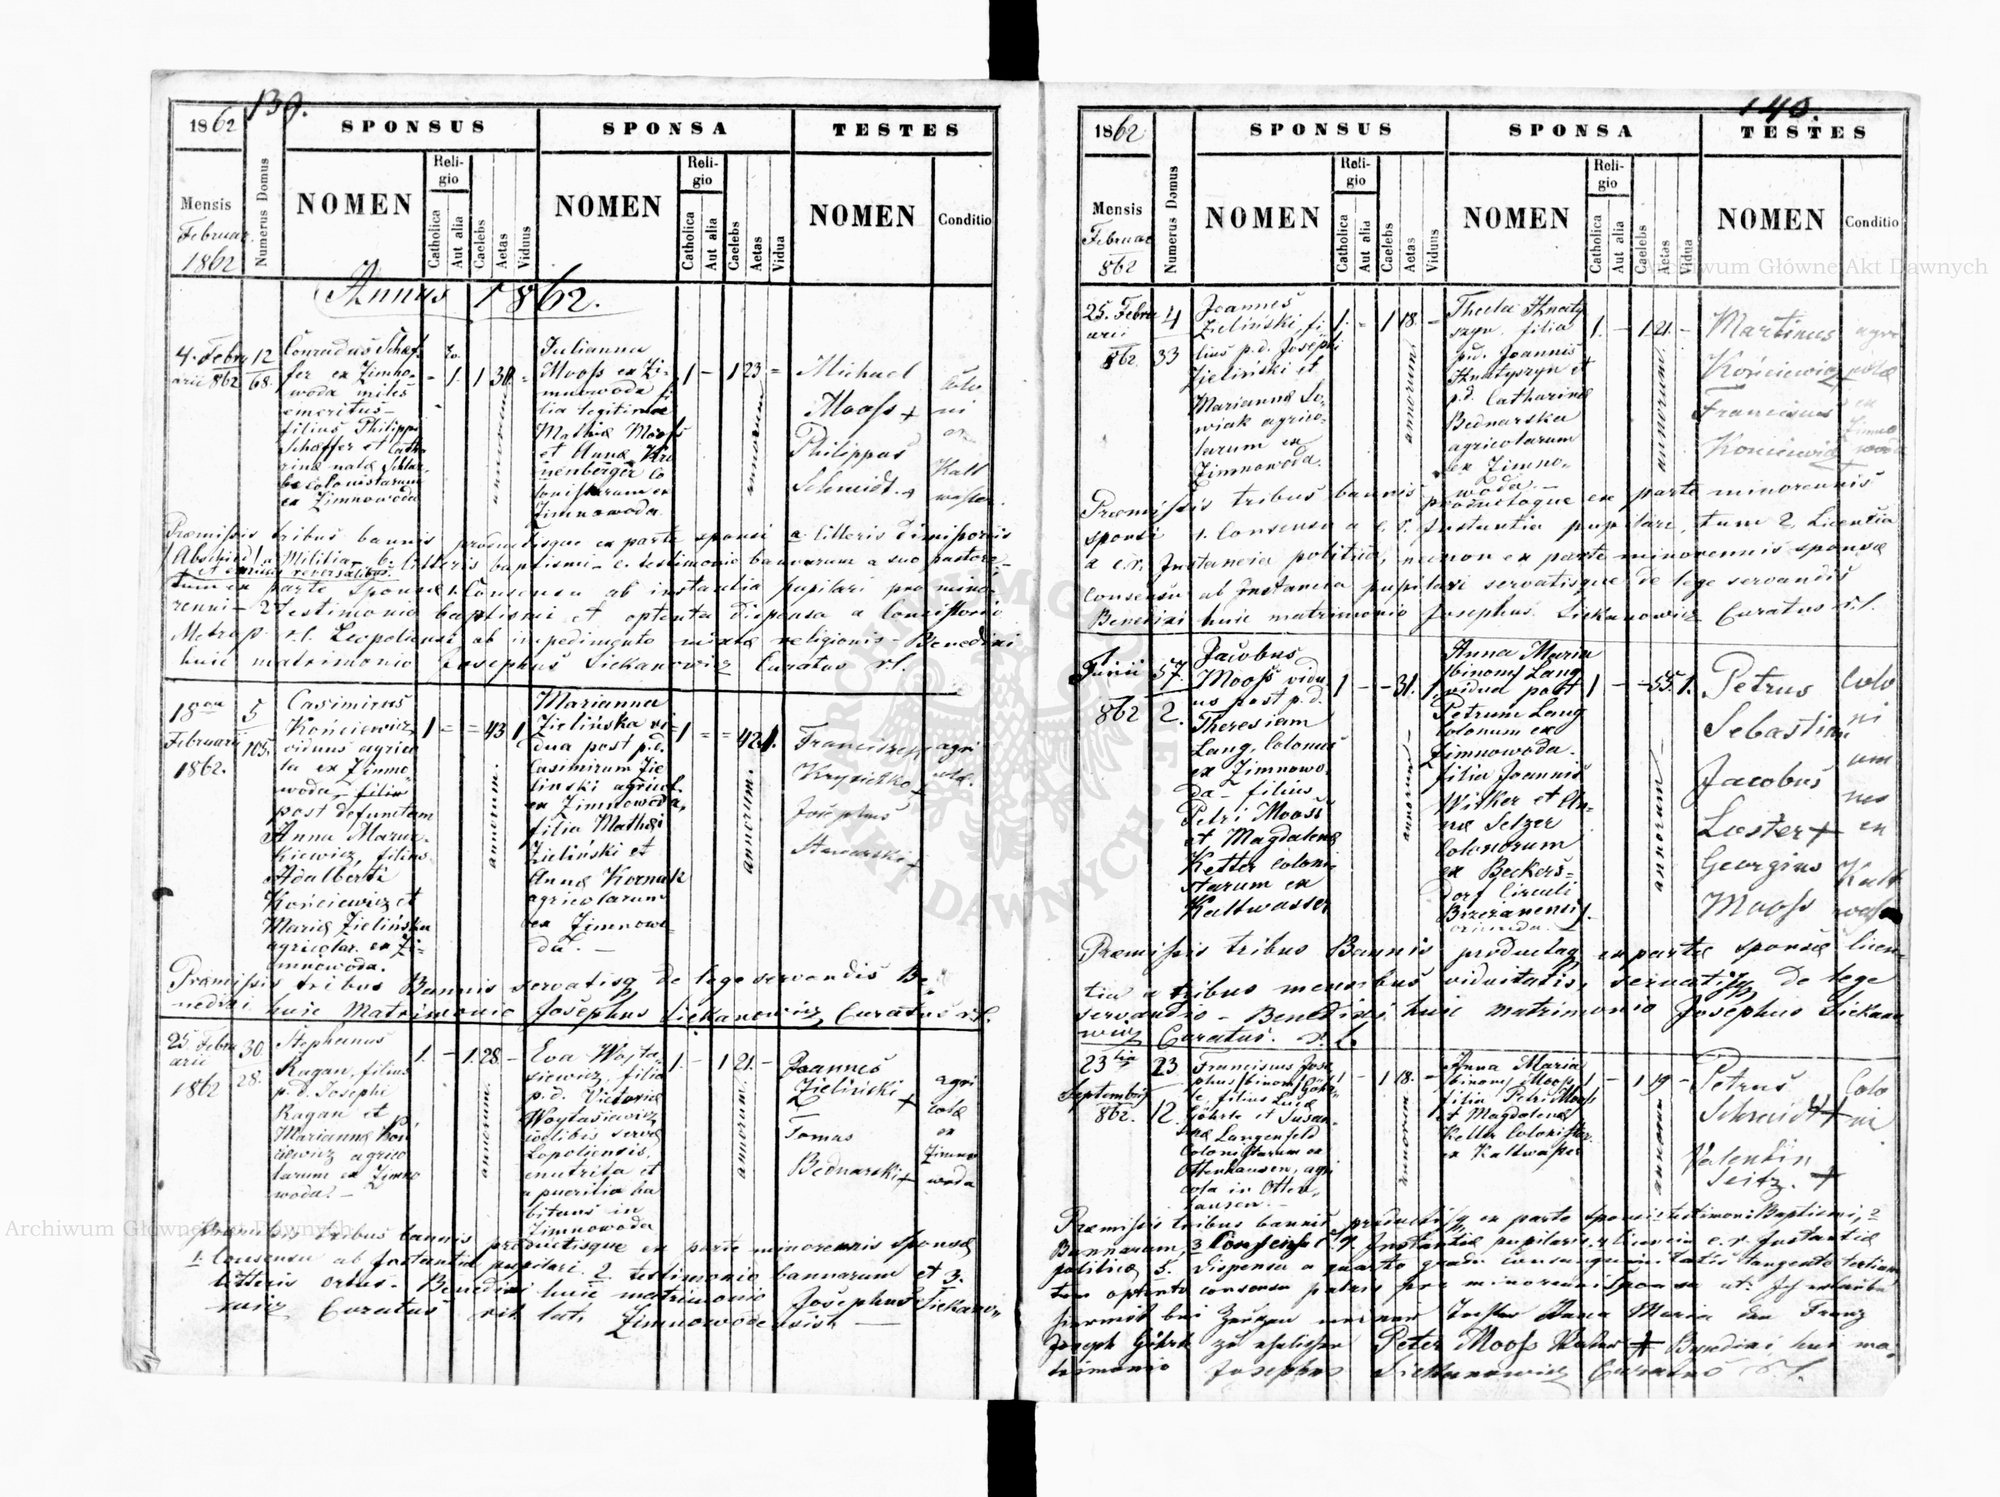 139.
1862
SPONSUS
SPONSA
TESTES
Mensis
Februar.
1862
Numerus Domus
NOMEN
Religio
Catholica
Aut alia
Caelebs
Aetas
Viduus
NOMEN
Religio
Catholica
Aut alia
Caelebs
Aetas
Vidua
NOMEN
Conditio
Annus 1862.
4. Febru
arii 862
12
68.
Conradus Schäf-
fer ex Zimno-
woda miles
emeritus –
filius Philippi
Schaeffer et Catha
rinae natae
colonistarum
ex Zimnowoda
1. 1 30.
annorum
Julianna
Mooss ex Zi-
mnowoda fi
lia legitima
Mathiae Mooss
et Annae Kro
nenberger Co
lonistarum ex
Zimnowoda.
1 – 1 23 =
annorum
Michael
Mooss +
Philippus
Schmidt. +
Colo
ni
ex
Kalt
wasser.
Praemissis tribus bannis productisque ex parte sponsi a. litteris dimissoriis
/Abschied/ a Militia – b. litteris baptismi – c. testimonio bannorum a suo pastore –
et reversalibus.
tum ex parte sponsae 1. Consensu ab instantia pupilari pro mino-
renni – 2 testimonio baptismi et optenta dispensa a Consistorio
Metrop. r.l. Leopoliensi ab impedimento mixtae religionis – Benedixi
huic matrimonio Josephus Siekanowicz Curatus r.l.
18va
Februarii
1862.
5
105.
Casimirus
Kościewicz,
viduus agrico
la ex Zimno-
woda, – filia
post defunctam
Anna Mazur-
kiewicz, filius
Adalberti
Kościewicz et
Mariae Zielińska
agricolar. ex Zi-
mnowoda.
1 = = 43 1
annorum.
Marianna
Zielińska vi-
dua post p.d.
Casimirum Zie
liński agricol.
ex Zimnowoda,
filia Mathaei
Zieliński et
Annae Kornak
agricolarum
ex Zimnowo-
da. –
1 = = 42 1.
annorum.
Franciszek
+
Josephus
+
agri
colae.
Praemissis tribus Bannis servatisq de lege servandis Be-
nedixi huic Matrimonio Josephus Siekanowicz Curatus r.l.
25. Febru
arii
1862
30.
28.
Stephanus
Ragan, filius
p.d. Josephi
Ragan et
Mariannae Koś
ciewicz agrico
larum ex Zimno
woda. –
1. – 1. 28. –
annorum.
Eva Woyta-
siewicz, filia
p.d. Victoriae
Woytasiewicz,
coelibis servae
Lopoliensis,
enutrita et
a pueritia ha
bitans in
Zimnowoda
1 – 1 21. –
annorum
Joannes
Zieliński +
Tomas
Bednarski +
agri
colae
ex
Zimno
woda
Praemissis tribus bannis productisque ex parte minorennis sponsae
1. Consensu ab Instantia pupilari. 2 testimonio bannorum et 3.
litteris ortus. – Benedixi huic matrimonio Josephus Siekano-
wicz Curatus rit lat. Zimnowodensis. –
140.
1862
SPONSUS
SPONSA
TESTES
Mensis
Februar
862
Numerus Domus
NOMEN
Religio
Catholica
Aut alia
Caelebs
Aetas
Viduus
NOMEN
Religio
Catholica
Aut alia
Caelebs
Aetas
Vidua
NOMEN
Conditio
25. Febru
arii
862.
4
33
Joannes
Zieliński, fi
lius p.d. Josephi
Zieliński et
Mariannae So-
wiak agrico-
larum ex
Zimnowoda.
1. – 1 18. –
annorum
Thecla Hnaty
szyn, filia
p.d. Joannis
Hnatyszyn et
p.d. Catharinae
Bednarska
agricolarum
ex Zimno-
woda. –
1. – 1 21. –
annorum.
Martinus
Kościewicz +
Francisus
Kościewicz +
agri
colae
ex
Zimno
woda
Praemissis tribus bannis productoque ex parte minorennis
sponsi 1. Consensu a c. r. Instantia pupilari, tum 2. Licentia
a c.r. Instancia politica, necnon ex parte minorennis sponsae
consensu ab Instantia pupilari servatisque de lege servandis
Benedixi huic matrimonio Josephus Siekanowicz Curatus r.l.
7 Junii
862
57
2.
Jacobus
Mooss vidu
us post p.d.
Theresiam
Lang, Colonus
ex Zimnowo-
da – filius
Petri Mooss
et Magdalenae
Ketter Coloni-
starum ex
Kaltwasser
1 – – 31. 1
annorum –
Anna Maria
/binom/ Lang
vidua post
Petrum Lang
colonum ex
Zimnowoda.
filia Joannis
Witker et An-
nae Selzer
Colonorum
ex Beckers-
dorf Circuli
Brzezanensis.
oriunda. –
1 – – 55. 1.
annorum –
Petrus
Sebastian
Jacobus
Luster +
Georgius
Mooss
Colo
ni
om
nes
ex
Kalt
wasser
Praemissis tribus Bannis productaq ex parte sponsae licen-
tia a tribus mensibus viduitatis, servatisq de lege
servandis – Benedixi huic matrimonio Josephus Siekano
wicz Curatus. r. l.
23tia
Septembris
862.
23
12.
Franciscus Jose
phus /binom/ Göhr
le, filius Luca
Göhrle et Susan-
nae Langenfeld
Colonistarum ex
Ottenhausen, agri
cola in Otten-
hausen. –
1 – 1 18. –
annorum
Anna Maria
/binom/ Mooss,
filia Petri Mooss
et Magdalenae
Ketter Colonistar.
ex Kaltwasser
1 – 1 19 –
annorum
Petrus
Schmidt +
Valentin
Seitz. +
Colo
ni.
Praemissis tribus bannis productisq ex parte sponsi 1. testimonio Baptismi, 2
Bannorum, 3 Consensu c. r. Instantiae pupilaris 4 licencia c. r. Instantiae
politicae 5. Dispensa a quarto gradu consanguinitatis tangente tertium
tum optento consensu patris pro minorenni sponsa ut. Ich erlaube
hiermit bei Zeugen meiner Tochter Anna Maria den Franz
Joseph Göhrle zu ehelichen Peter Mooss Vater + Benedixi huic ma-
trimonio Josephus Siekanowicz Curatus r. l.
Archiwum Główne Akt Dawnych
Archiwum Główne Akt Dawnych
ARCHIWUM GŁÓWNE AKT DAWNYCH